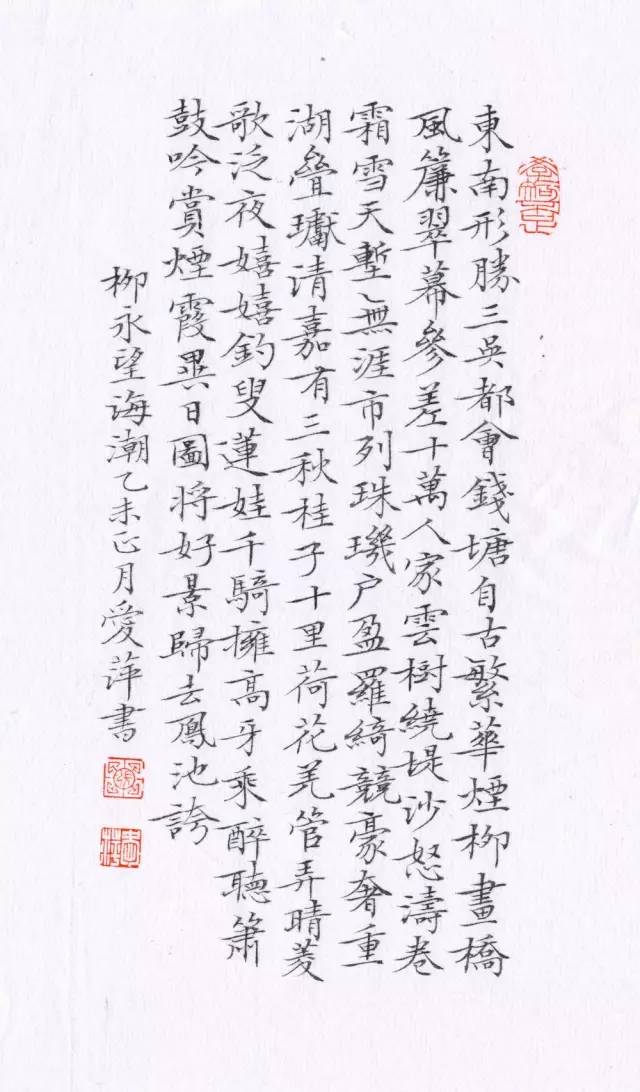 東南形勝三吳都會錢塘自古繁華煙柳畫橋
風簾翠幕參差十萬人家雲樹繞堤沙怒濤卷
霜雪天塹無涯市列珠璣户盈羅綺競豪奢重
湖疊巘清嘉有三秋桂子十里荷花羌管弄晴菱
歌泛夜嬉嬉釣叟蓮娃千騎擁高牙乘醉聽簫
鼓吟賞煙霞異日圖將好景歸去鳳池誇
柳永望海潮乙未正月愛萍書